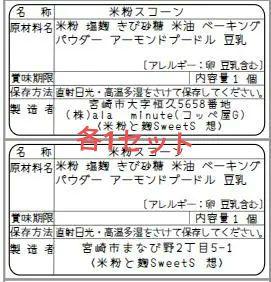 名 称 米粉スコーン
原材料名 米粉 塩麹 きび砂糖 米油 ベーキング
パウダー アーモンドプードル 豆乳
[アレルギー:卵 豆乳含む]
賞味期限 内容量 1 個
保存方法 直射日光・高温多湿をさけて保存してください。
製 造 者 宮崎市大字恒久5658番地
(株)ala minute(コッペ屋G)
(米粉と麹SweetS 想)
各1セット
名 称 米粉スコーン
原材料名 米粉 塩麹 きび砂糖 米油 ベーキング
パウダー アーモンドプードル 豆乳
[アレルギー:卵 豆乳含む]
賞味期限 内容量 1 個
保存方法 直射日光・高温多湿をさけて保存してください。
製 造 者 宮崎市まなび野2丁目5-1
(米粉と麹SweetS 想)